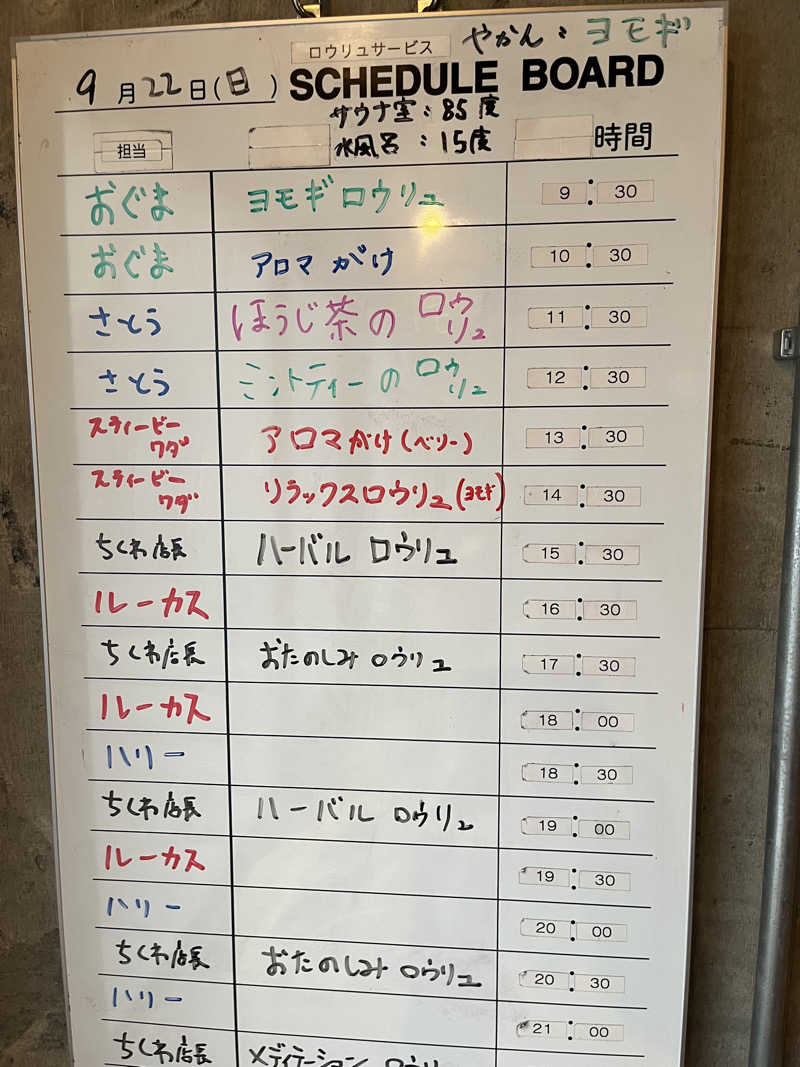 ロウリュサービス やかん：ヨモギ
9月22日(日) SCHEDULE BOARD
サウナ室：85度
水風呂：15度
担当 時間
おぐま ヨモギロウリュ 9:30
おぐま アロマがけ 10:30
さとう ほうじ茶のロウリュ 11:30
さとう ミントティーのロウリュ 12:30
スティービーワダ アロマがけ(ベリー) 13:30
スティービーワダ リラックスロウリュ(ヨモギ) 14:30
ちくわ店長 ハーバルロウリュ 15:30
ルーカス 16:30
ちくわ店長 おたのしみロウリュ 17:30
ルーカス 18:00
ハリー 18:30
ちくわ店長 ハーバルロウリュ 19:00
ルーカス 19:30
ハリー 20:00
ちくわ店長 おたのしみロウリュ 20:30
ハリー 21:00
ちくわ店長 メディテーションロウリュ